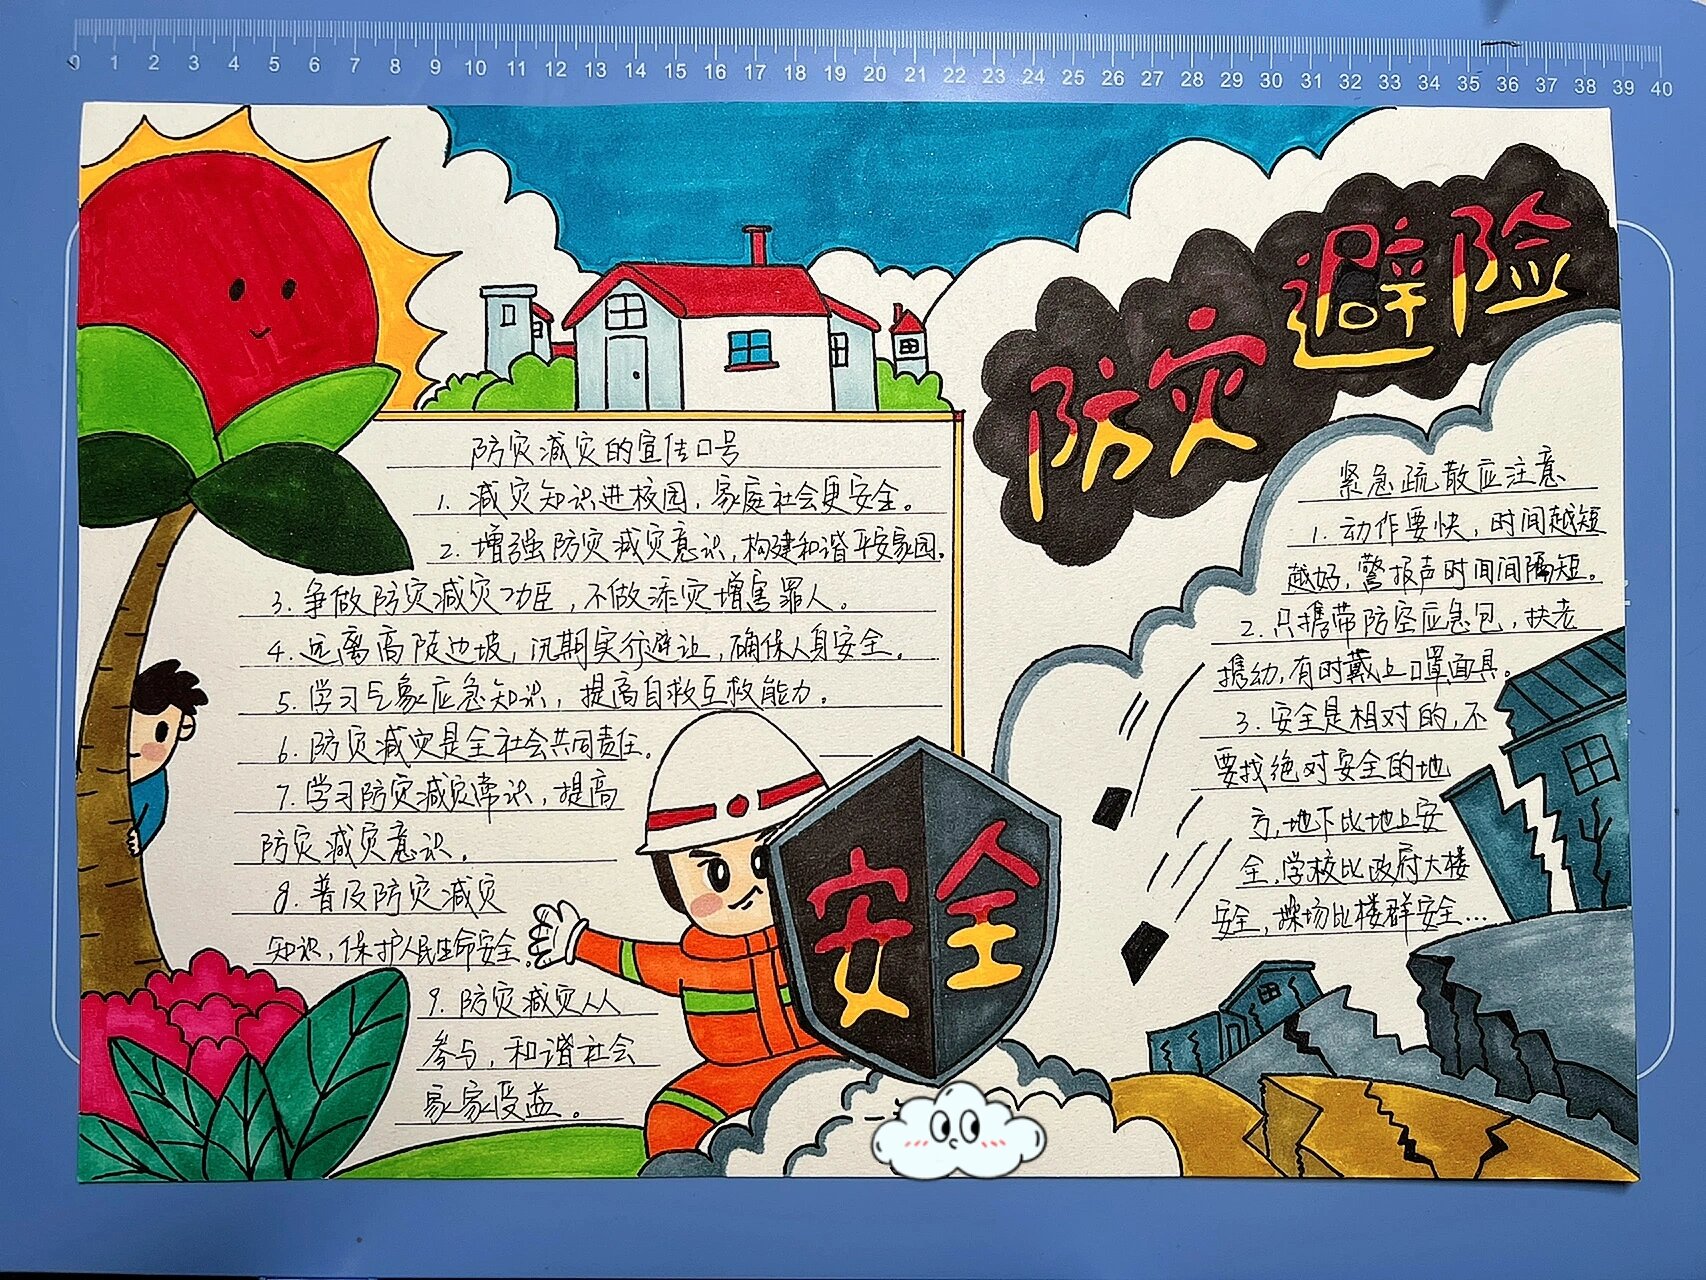 0 1 2 3 4 5 6 7 8 9 10 11 12 13 14 15 16 17 18 19 20 21 22 23 24 25 26 27 28 29 30 31 32 33 34 35 36 37 38 39 40
防灾避险
防灾减灾的宣传口号
1. 减灾知识进校园，家庭社会更安全。
2. 增强防灾减灾意识，构建和谐平安家园。
3. 争做防灾减灾功臣，不做添灾增害罪人。
4. 远离高陡边坡，汛期实行避让，确保人身安全。
5. 学习气象应急知识，提高自救互救能力。
6. 防灾减灾是全社会共同责任。
7. 学习防灾减灾常识，提高
防灾减灾意识。
8. 普及防灾减灾
知识，保护人民生命安全。
9. 防灾减灾人人
参与，和谐社会
家家受益。
安全
紧急疏散应注意
1. 动作要快，时间越短
越好，警报声时间间隔短。
2. 只携带防空应急包，扶老
携幼，有时戴上口罩面具。
3. 安全是相对的，不
要找绝对安全的地
方，地下比地上安
全，学校比政府大楼
安全，操场比楼群安全…